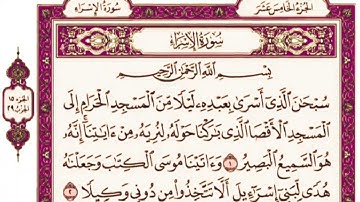 سُورَةُ الإِسْرَاءِ
الجُزْءُ الخَامِسَ عَشَرَ
سُورَةُ الإِسْرَاءِ
بِسْمِ اللَّهِ الرَّحْمَٰنِ الرَّحِيمِ
سُبْحَٰنَ الَّذِي أَسْرَىٰ بِعَبْدِهِ لَيْلًا مِّنَ الْمَسْجِدِ الْحَرَامِ إِلَى
الْمَسْجِدِ الْأَقْصَا الَّذِي بَٰرَكْنَا حَوْلَهُ لِنُرِيَهُ مِنْ ءَايَٰتِنَا إِنَّهُ
هُوَ السَّمِيعُ الْبَصِيرُ ١ وَءَاتَيْنَا مُوسَى الْكِتَٰبَ وَجَعَلْنَٰهُ
هُدًى لِّبَنِي إِسْرَٰٓءِيلَ أَلَّا تَتَّخِذُوا مِن دُونِي وَكِيلًا ٢